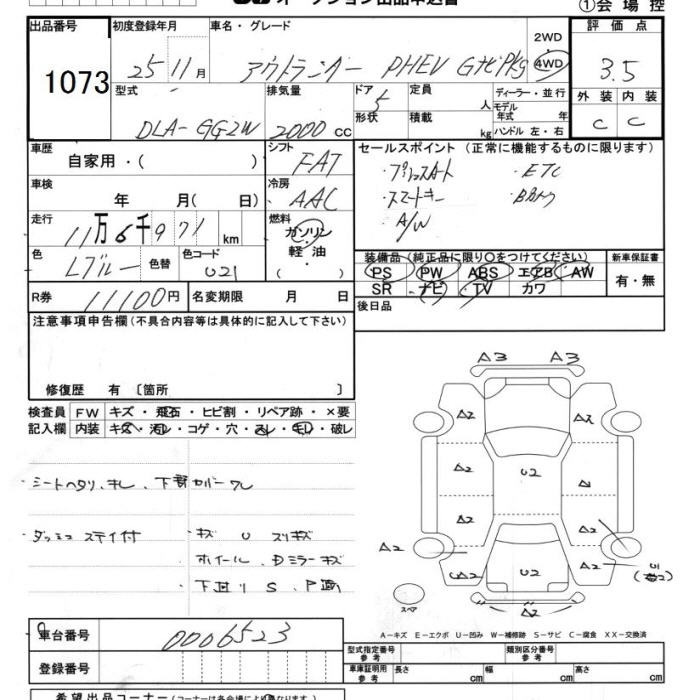 オークション出品申込書
①会場控
出品番号 初度登録年月 車名・グレード 2WD 評価点
1073 25 11月 アウトランナー PHEV GナビPkg 4WD 3.5
型式 排気量 ドア 定員 ディーラー・並行 外装 内装
DLA-GG2W 2000cc 5 人 モデル年式 年 C C
形状 積載 kg ハンドル 左・右
車歴 自家用・( ) シフト FAT セールスポイント (正常に機能するものに限ります)
・プッシュスタート ・ETC
車検 年 月( 日) 冷房 AAC ・スマートキー
・A/W
走行 11万6千971km 燃料 ガソリン 軽油 ( )
色 Lブルー 色替 色コード U21
装備品(純正品に限り○をつけてください) 新車保証書
PS PW ABS エアB AW 有・無
SR ナビ TV カワ
R券 11100円 名変期限 月 日 後日品
注意事項申告欄(不具合内容等は具体的に記入して下さい)
修復歴 有 〔箇所 〕
検査員 FW キズ・飛石・ヒビ割・リペア跡・×要
記入欄 内装 キズ・汚レ・コゲ・穴・スレ・モレ・破レ
A3 A3
A2 A2
A2 U2 A1
A2
A2 A2
U2
A2
・シートヘタリ、キレ、下部カバーワレ
・ダッシュ ステイ付 ・キズ U スリキズ
ホイール、Dミラーキズ
・下廻リ S
スペア
A-キズ E-エクボ U-凹み W-補修跡 S-サビ C-腐食 XX-交換済
車台番号 0006523
登録番号
型式指定番号 参考 類別区分番号 参考
車庫証明用 参考 長さ cm 幅 cm 高さ cm
希望出品コーナー(コーナーは各会場により異なります。)